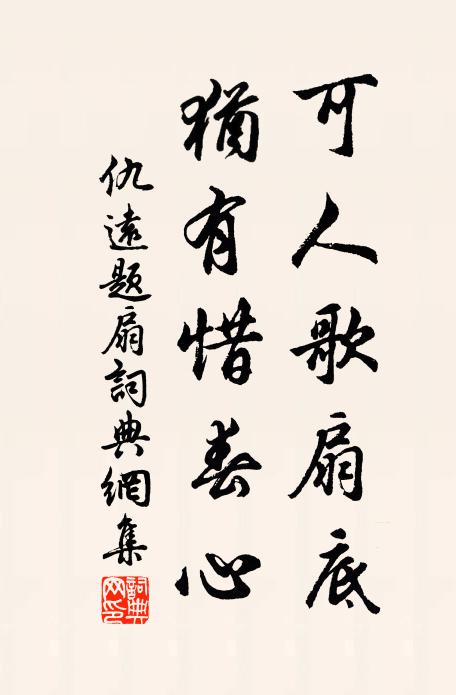 可人歌扇底
猶有惜春心
仇遠題扇詞典網集
詞典网印